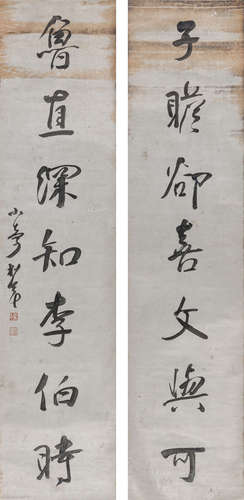 子瞻卻喜文與可
魯直深知李伯時